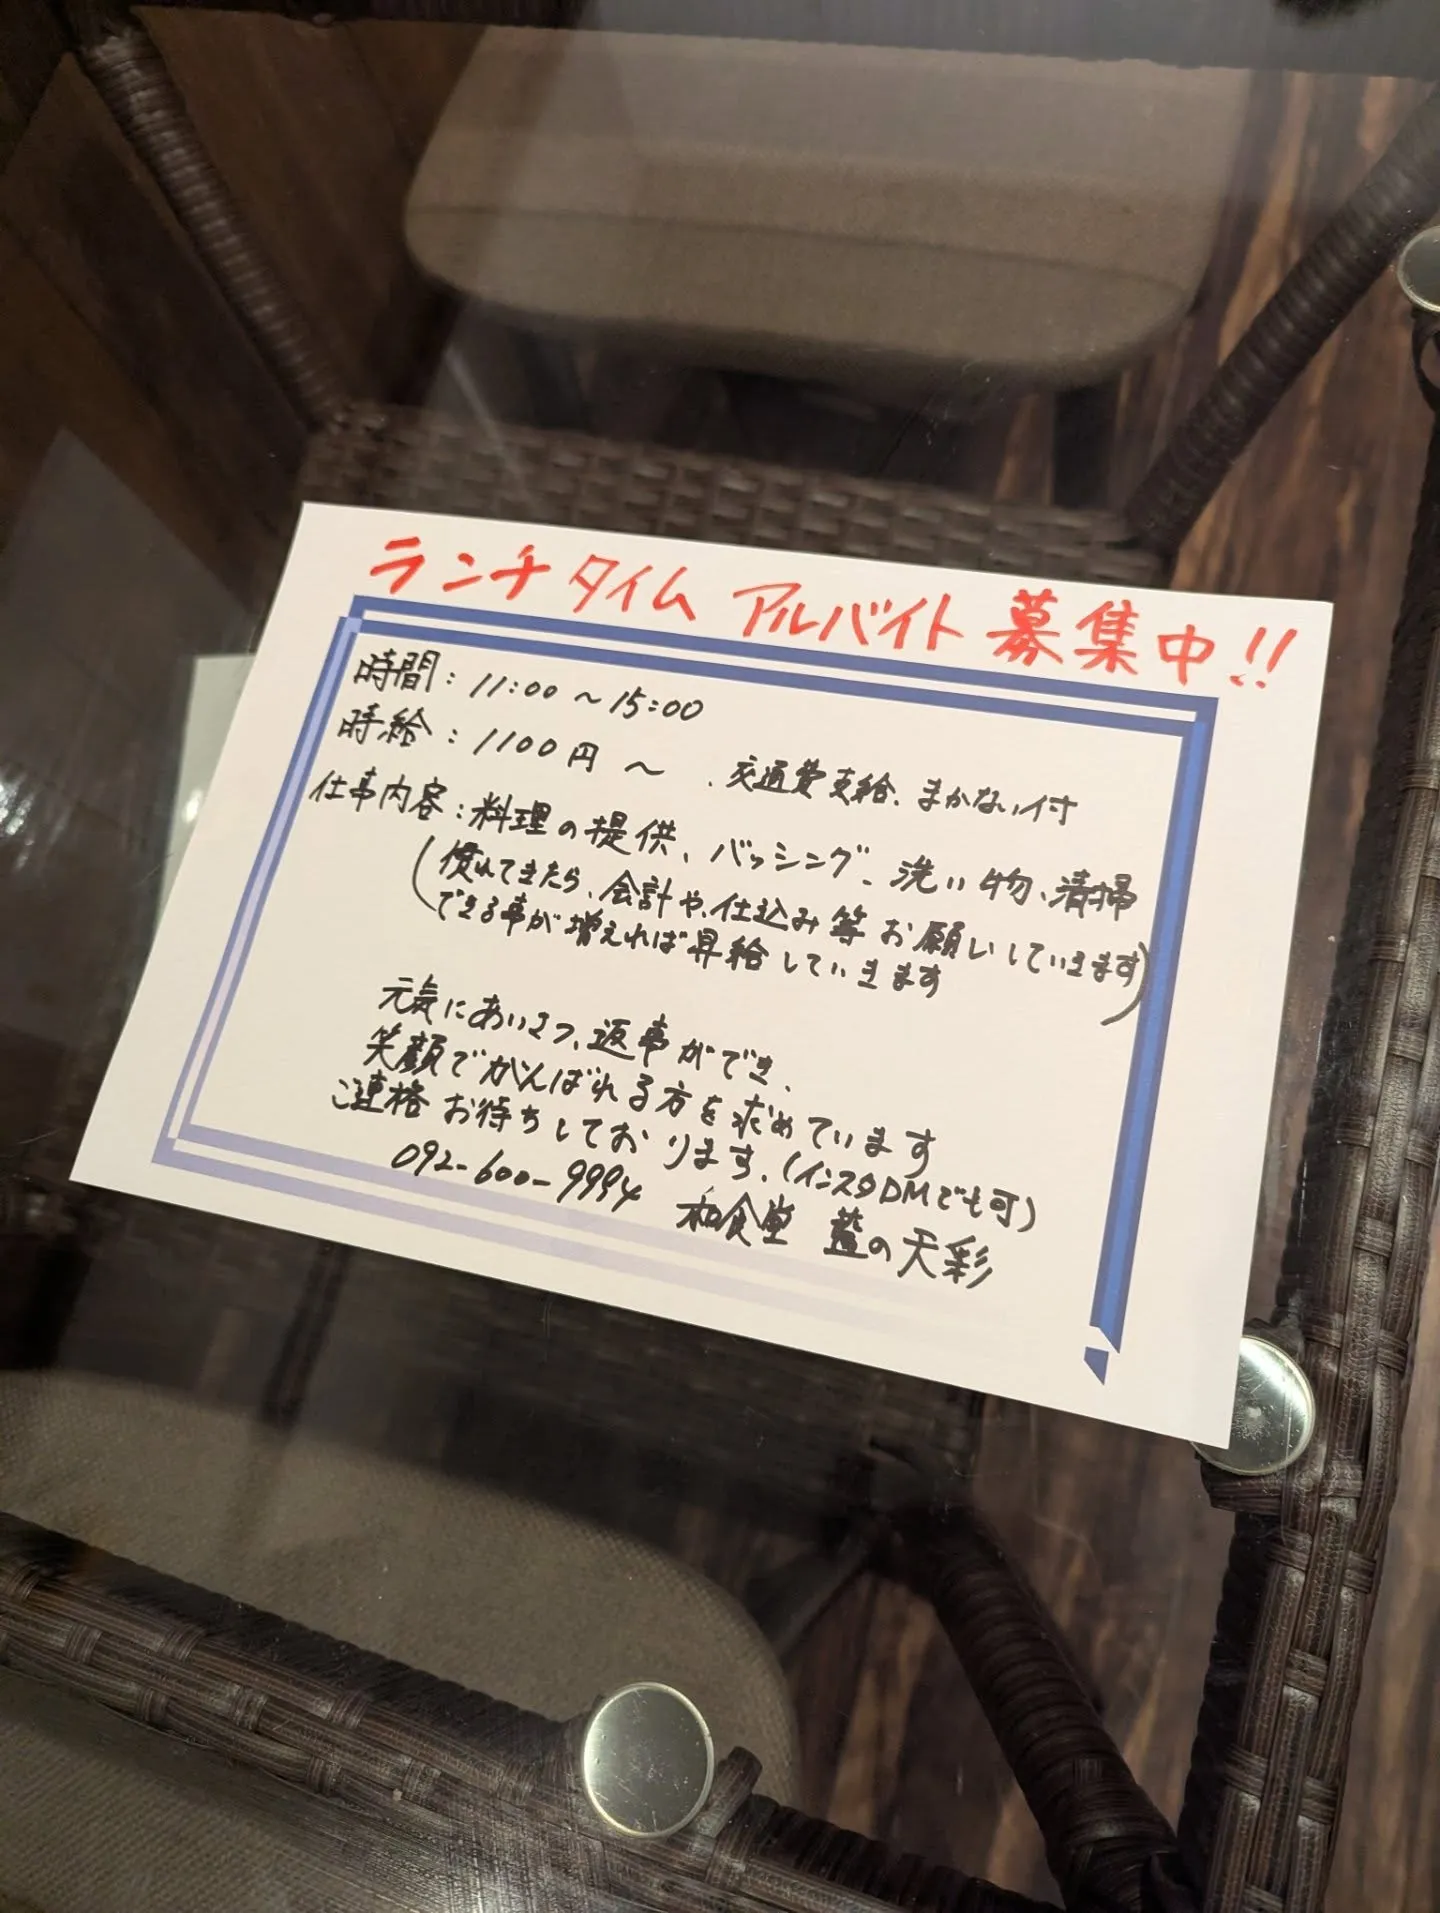 ランチタイム アルバイト 募集中!!
時間：11:00～15:00
時給：1100円～ . 交通費支給、まかない付
仕事内容：料理の提供、バッシング、洗い物、清掃
(慣れてきたら、会計や、仕込み等お願いしていきます
できる事が増えれば昇給していきます)
元気にあいさつ、返事ができ、
笑顔でがんばれる方を求めています
ご連絡お待ちしております。(インスタDMでも可)
092-600-9994 和食堂 藍の天彩